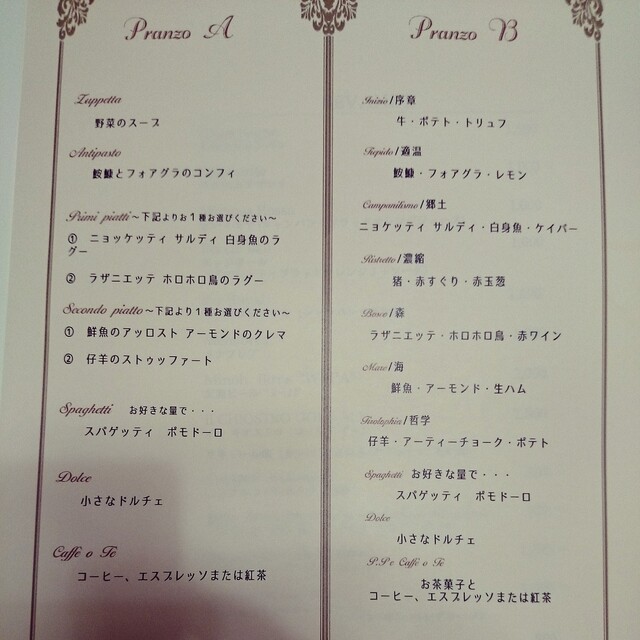 Pranzo A
Zuppetta
野菜のスープ
Antipasto
鮟鱇とフォアグラのコンフィ
Primi piatti～下記よりお１種お選びください～
① ニョッケッティ サルディ 白身魚のラ
グー
② ラザニエッテ ホロホロ鳥のラグー
Secondo piatto～下記より１種お選びください～
① 鮮魚のアッロスト アーモンドのクレマ
② 仔羊のストゥッファート
Spaghetti お好きな量で・・・
スパゲッティ ポモドーロ
Dolce
小さなドルチェ
Caffe o Te
コーヒー、エスプレッソまたは紅茶
Pranzo B
Inizio/序章
牛・ポテト・トリュフ
Tepido/適温
鮟鱇・フォアグラ・レモン
Campanilismo/郷土
ニョケッティ サルディ・白身魚・ケイパー
Ristretto/濃縮
猪・赤すぐり・赤玉葱
Bosco/森
ラザニエッテ・ホロホロ鳥・赤ワイン
Mare/海
鮮魚・アーモンド・生ハム
/哲学
仔羊・アーティーチョーク・ポテト
Spaghetti お好きな量で・・・
スパゲッティ ポモドーロ
Dolce
小さなドルチェ
P.P e Caffe o Te
お茶菓子と
コーヒー、エスプレッソまたは紅茶